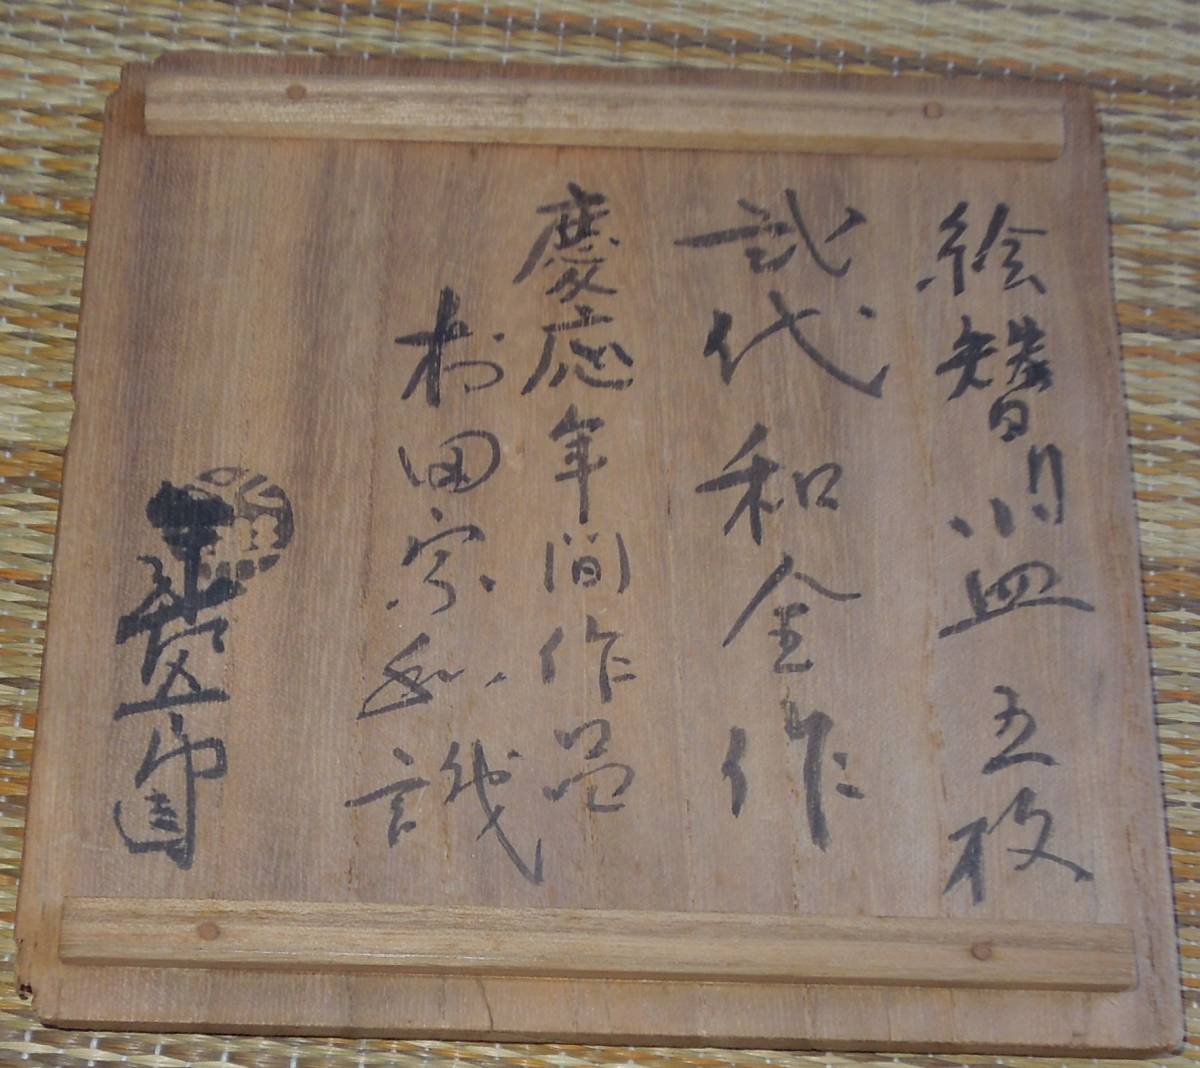 絵替り小皿五枚
弐代和全作
慶応年間作品
村田宗和識